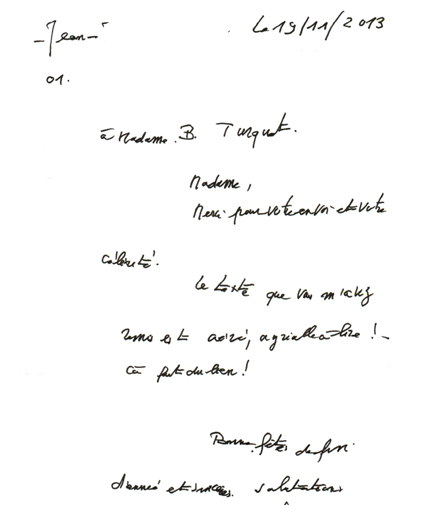 - Jean -
Le 19/11/2013
01.
à Madame. B. Turquet.
Madame,
Merci pour votre envoi et votre
célérité.
Le texte que vous m'
est aéré, agréable à lire ! -
Ça fait du bien !
Bonne fêtes de fin
d'année et sincères. salutations